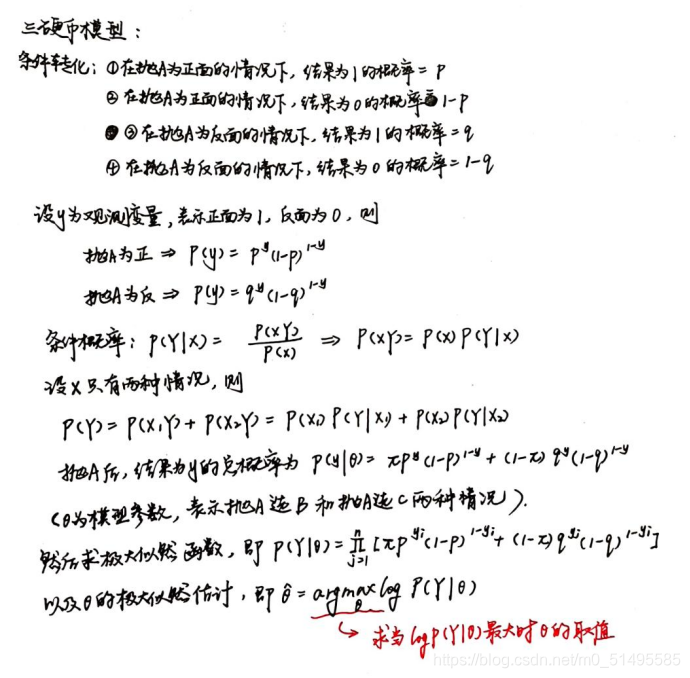 三硬币模型：
条件转化：①在抛A为正面的情况下，结果为1的概率= p
②在抛A为正面的情况下，结果为0的概率=1-p
③在抛A为反面的情况下，结果为1的概率=q
④在抛A为反面的情况下，结果为0的概率=1-q
设y为观测变量，表示正面为1，反面为0，则
抛A为正 ⇒ P(y) = p^y (1-p)^{1-y}
抛A为反 ⇒ P(y) = q^y (1-q)^{1-y}
条件概率：P(Y|X) = P(XY) / P(X) ⇒ P(XY) = P(X) P(Y|X)
设X只有两种情况，则
P(Y) = P(X₁Y) + P(X₂Y) = P(X₁) P(Y|X₁) + P(X₂) P(Y|X₂)
抛A后，结果为y的总概率为 P(y|θ) = πp^y (1-p)^{1-y} + (1-π) q^y (1-q)^{1-y}
（θ为模型参数，表示抛A选B和抛A选C两种情况）.
然后求极大似然函数，即 P(Y|θ) = ∏_{j=1}^{n} [πp^{yi} (1-p)^{1-yi} + (1-π) q^{yi} (1-q)^{1-yi}]
以及θ的极大似然估计，即 θ̂ = argmax_θ log P(Y|θ)
↳ 求当log P(Y|θ)最大时θ的取值
https://blog.csdn.net/m0_51495585